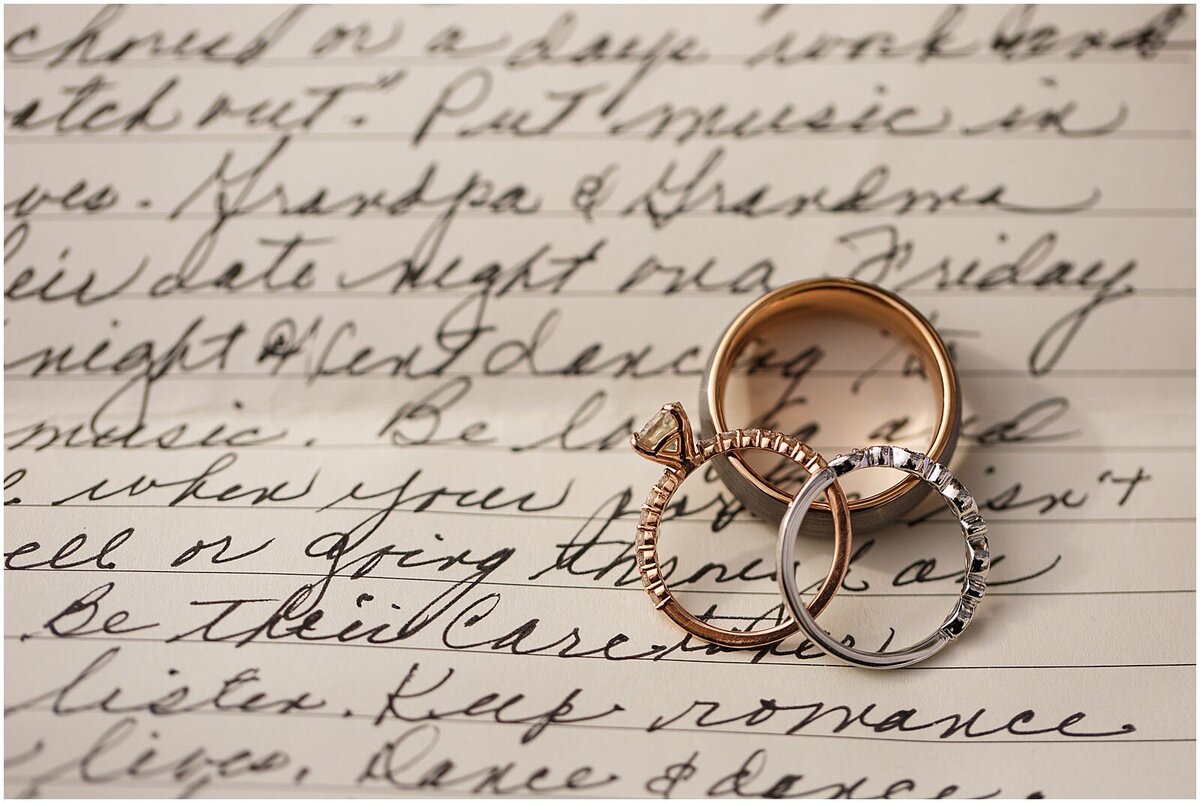 chores or a days work and
atch out." Put music in
ves. Grandpa & Grandma
eir date night on a Friday
night & Went dancing to
music. Be loving and
when your isn't
ell or going through an
Be their Caretaker
listen. Keep romance
lives. Dance & dance.